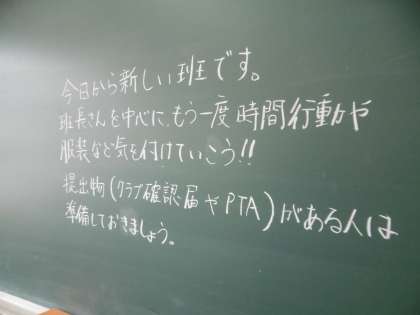 今日から新しい班です。
班長さんを中心に、もう一度時間行動や
服装など気を付けていこう!!
提出物(クラブ確認届やPTA)がある人は
準備しておきましょう。